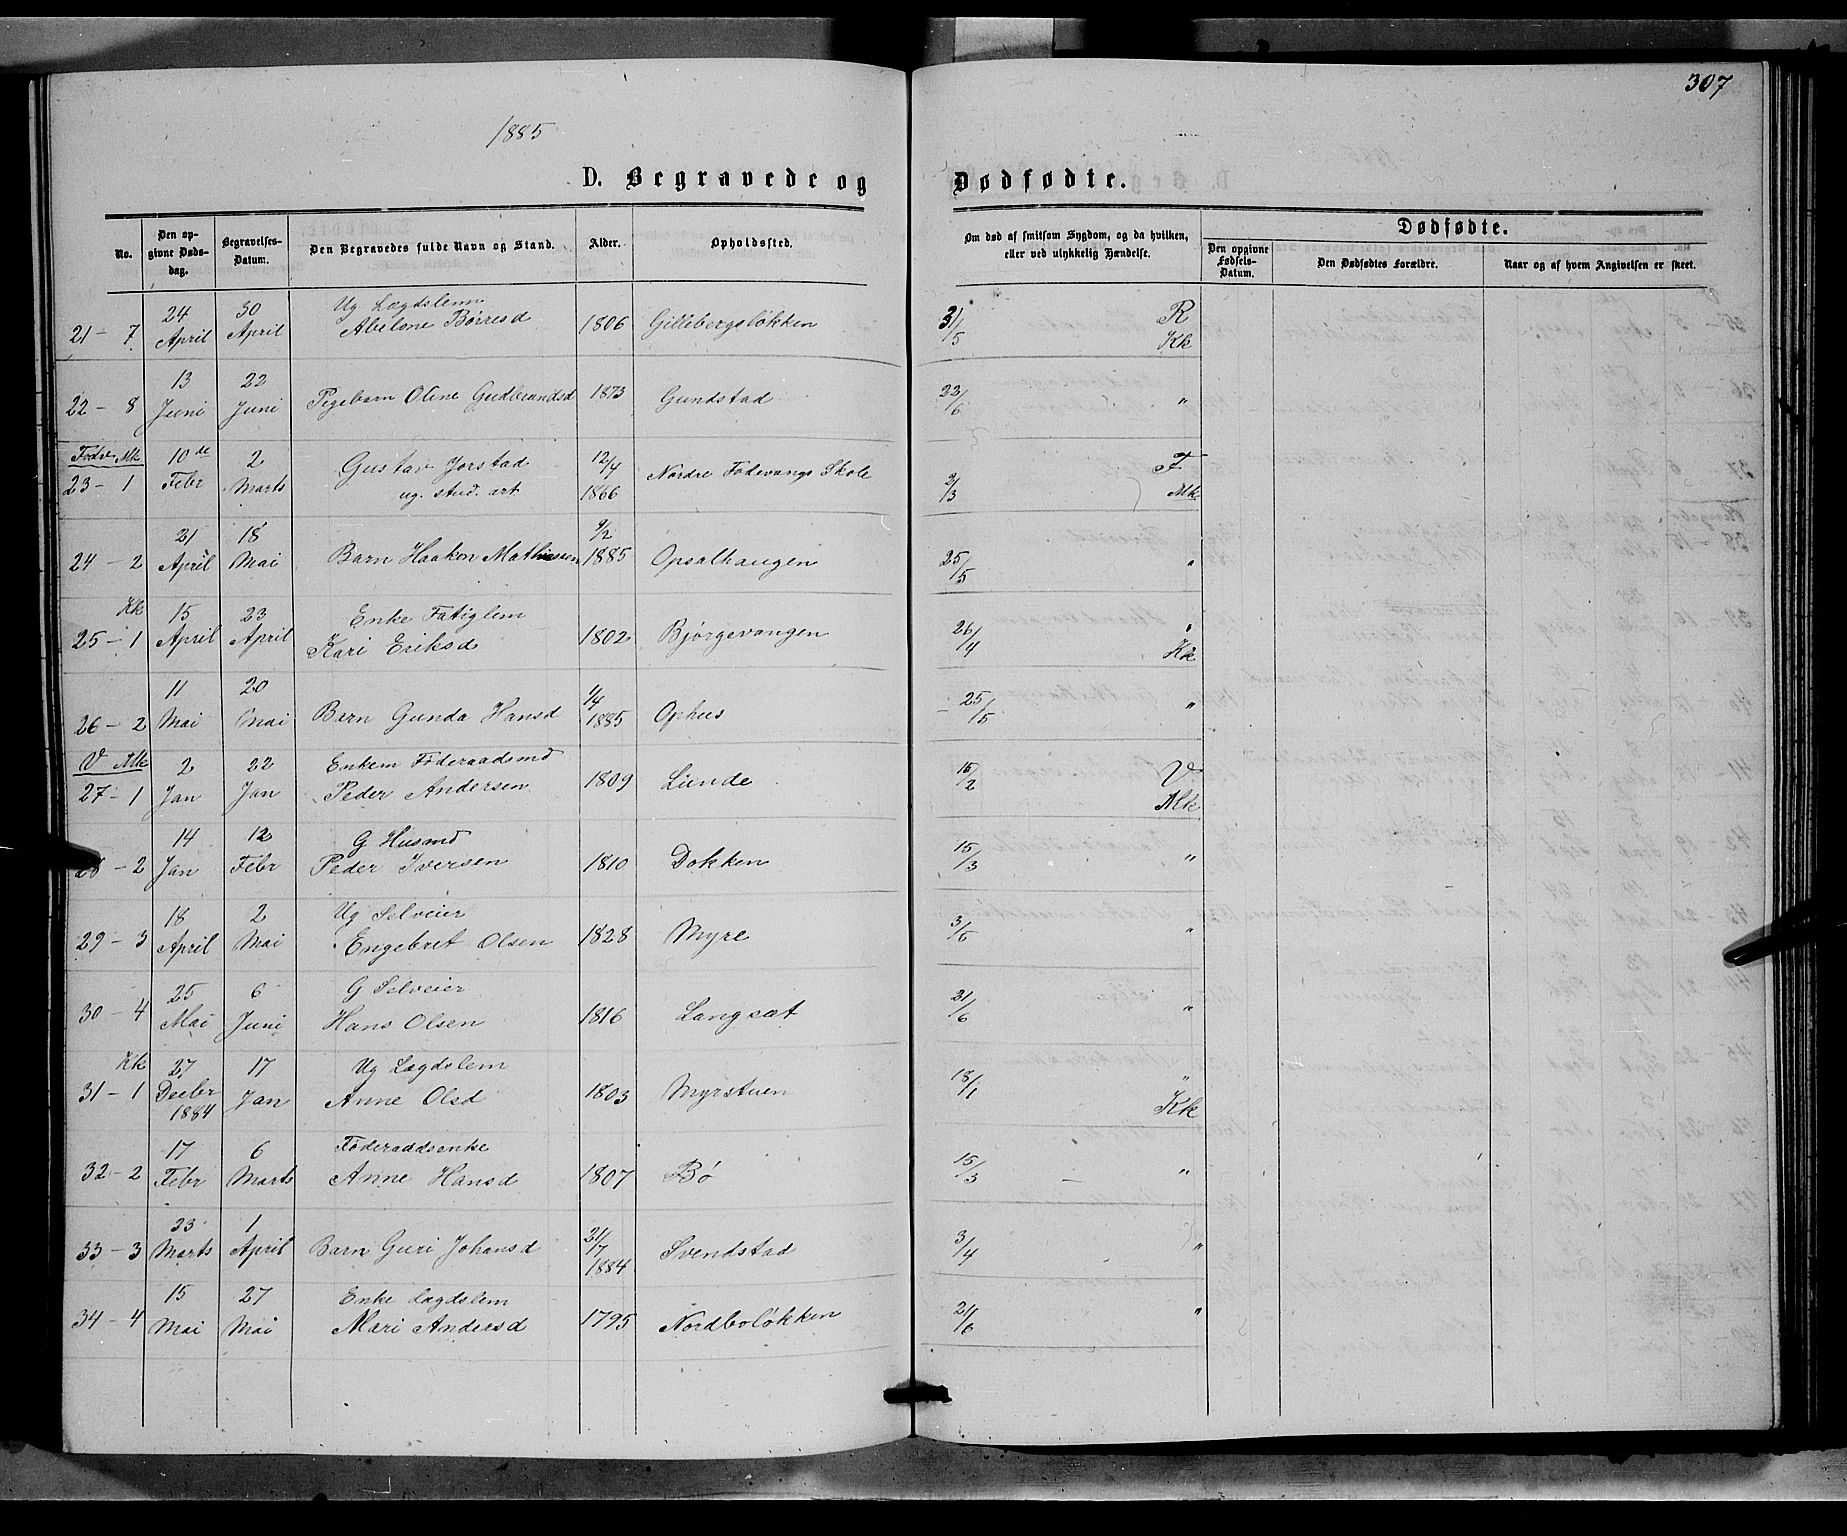 307
1885
D. Begravede og Dødfødte.
No.
Den opgivne Dødsdag.
Begravelses-Datum.
Den Begravedes fulde Navn og Stand.
Alder.
Opholdssted.
Om død af smitsom Sygdom, og da hvilken, eller ved ulykkelig Hændelse.
Dødfødte.
Den opgivne Fødsels-Datum.
Den Dødfødtes Forældre.
Naar og af hvem Angivelsen er skeet.
21 - 7 24 April 30 April Ug Lægdslem Abelone Børresd 1806 Gillebergsløkken 31/5 R Kk
22 - 8 13 Juni 22 Juni Pigebarn Oline Gudbrandsd 1873 Gundstad 22/6 "
Fodv Mk
23 - 1 10de Febr 2 Marts Gustav Jorstad ug. stud. art 12/4 1866 Nordre Fodvangs Skole 2/3 F Mk
24 - 2 21 April 18 Mai Barn Haakon Mathiesen 9/2 1885 Opsalhaugen 25/5 "
Kk
25 - 1 15 April 23 April Enke Fatiglem Kari Eriksd 1802 Bjørgevangen 26/4 " Kk
26 - 2 11 Mai 20 Mai Barn Gunda Hansd 1/4 1885 Ophus 25/5 "
V Mk
27 - 1 2 Jan 22 Jan Enkem Føderaadsmd Peder Andersen 1809 Lunde 15/2 V Mk
28 - 2 14 Jan 12 Febr G Husmd Peder Iversen 1810 Dokken 15/3 "
29 - 3 18 April 2 Mai Ug Selveier Engebret Olsen 1828 Myre 3/5 "
30 - 4 25 Mai 6 Juni G Selveier Hans Olsen 1816 Langsæt 21/6 "
Kk
31 - 1 27 Decbr 1884 17 Jan Ug Lægdslem Anne Olsd 1803 Myrstuen 18/1 " Kk
32 - 2 17 Febr 6 Marts Føderaadsenke Anne Hansd 1807 Bø 15/3 "
33 - 3 23 Marts 1 April Barn Guri Johansd 31/7 1884 Svendstad 3/4 "
34 - 4 15 Mai 27 Mai Enke Lægdslem Mari Andersd 1795 Nordboløkken 21/6 "